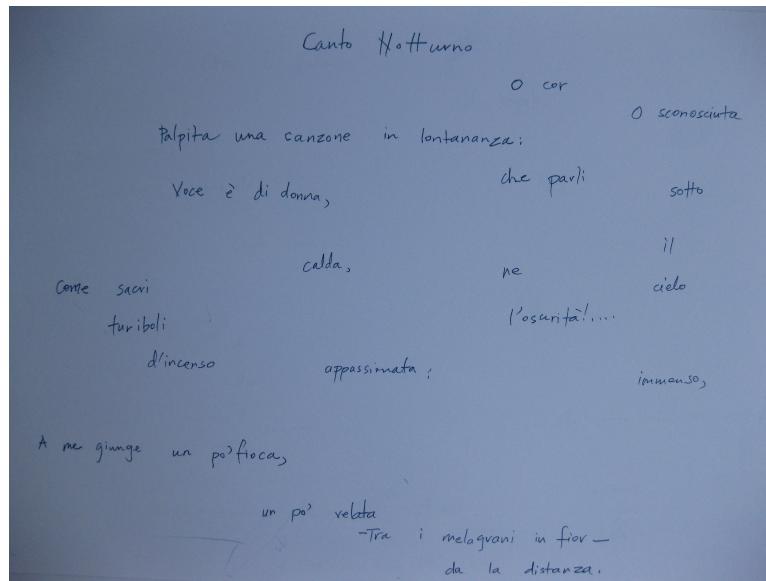 Canto Notturno
O cor
O sconosciuta
Palpita una canzone in lontananza;
che parli
sotto
Voce è di donna,
il
calda,
ne
cielo
Come sacri
turiboli
l'osurità!....
d'incenso
appassinata;
immenso,
A me giunge un po' fioca,
un po' velata
-Tra i melagrani in fior-
da la distanza.